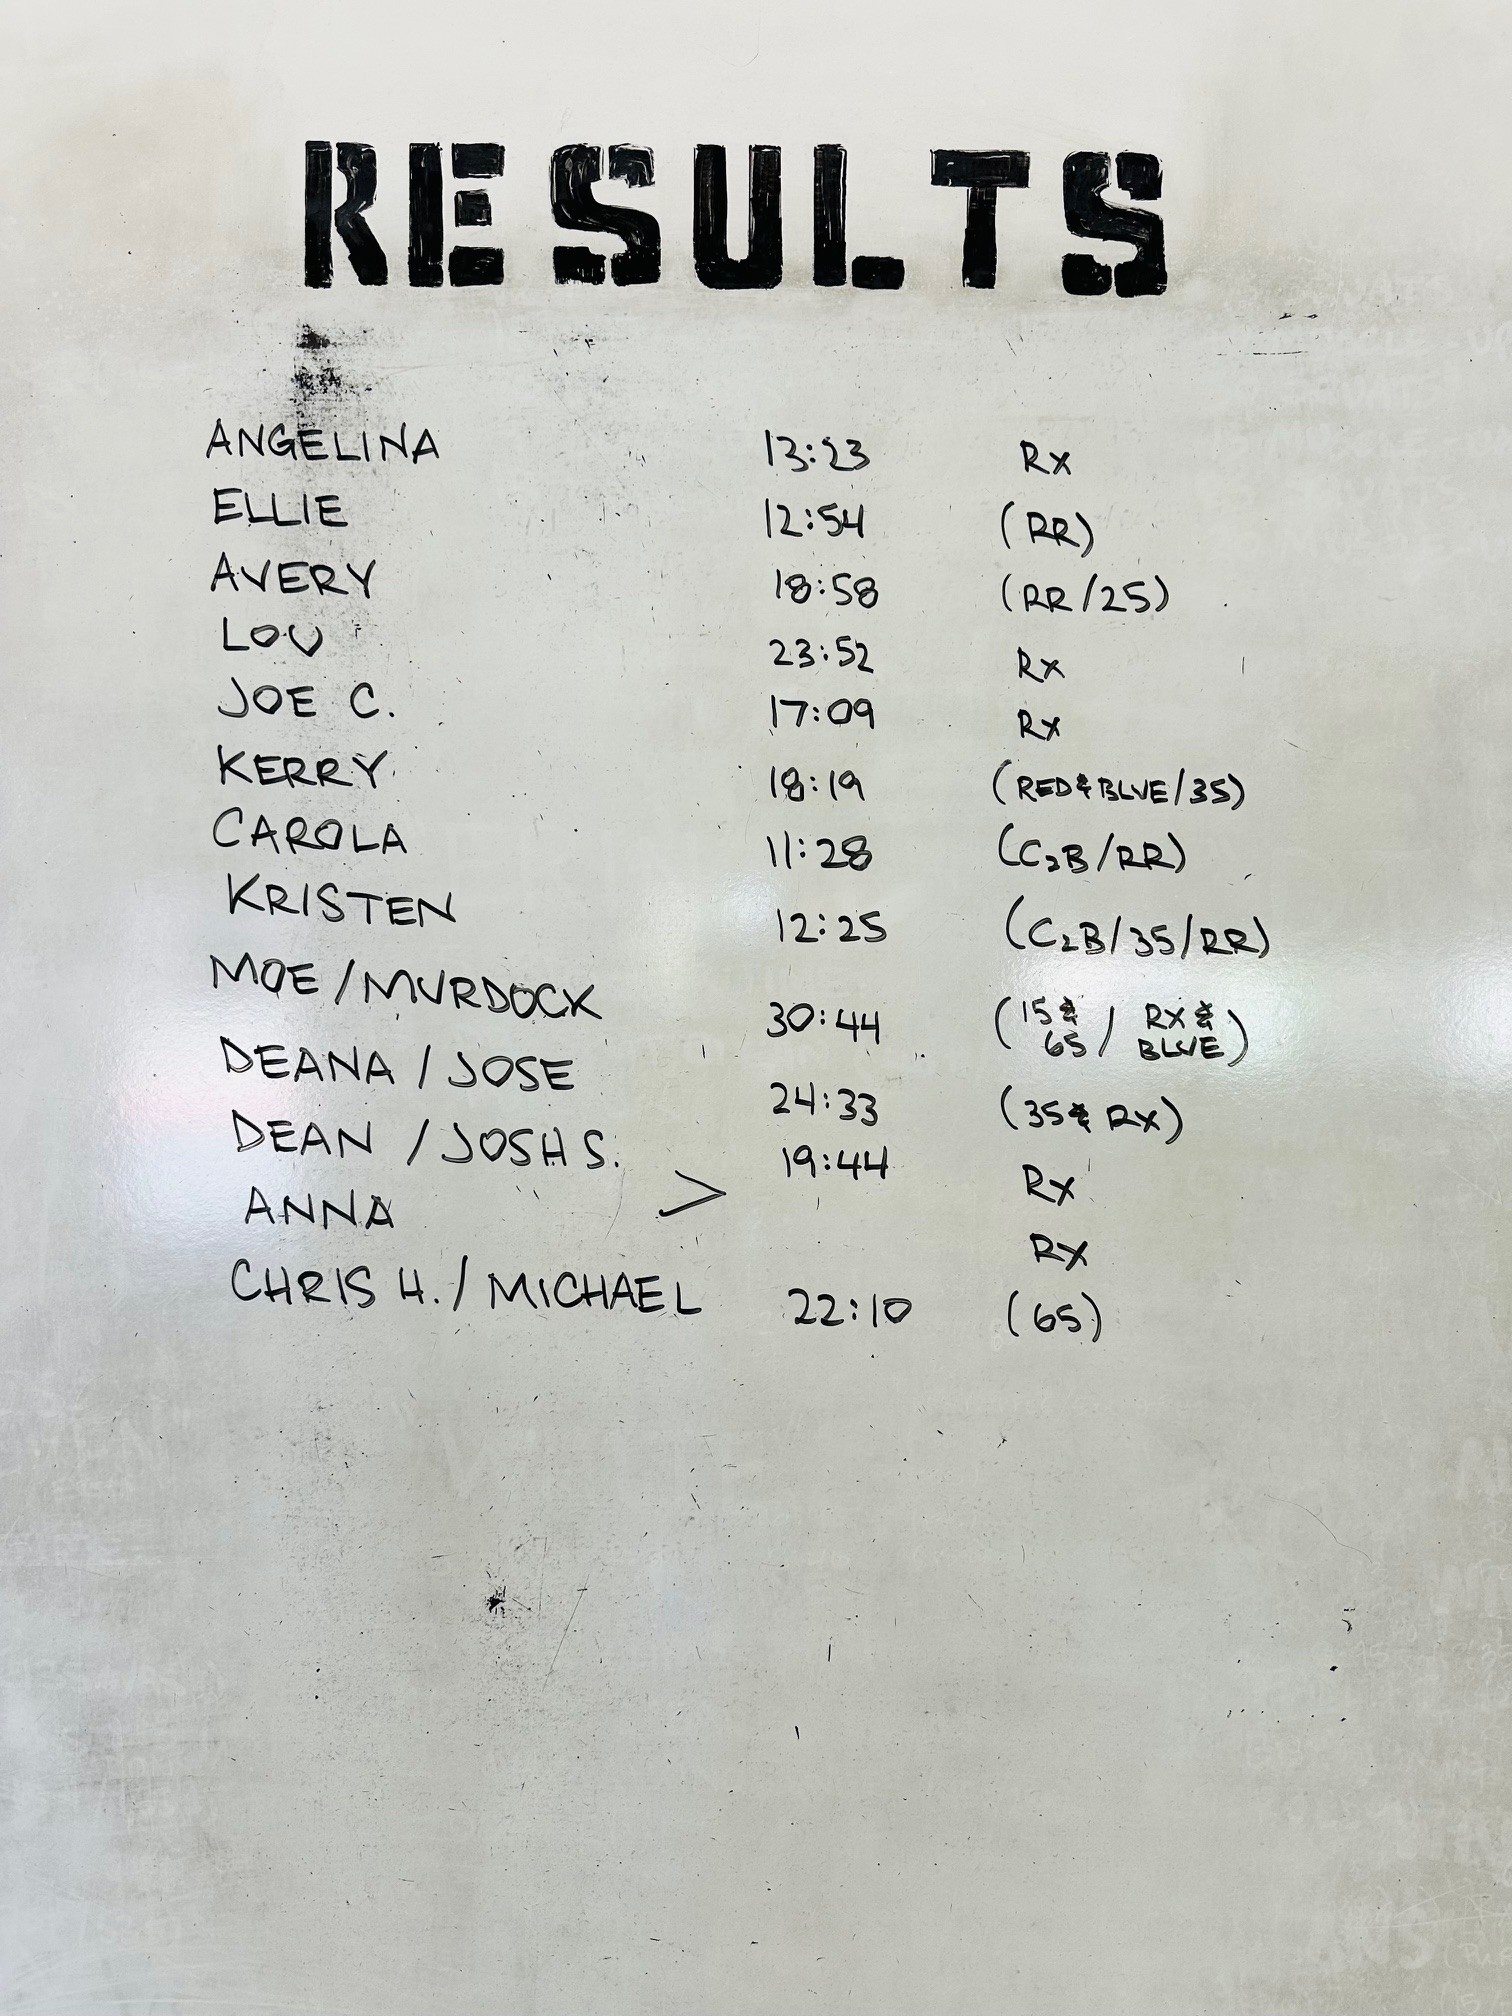 RESULTS
ANGELINA 13:23 Rx
ELLIE 12:54 (RR)
AVERY 18:58 (RR/25)
LOU 23:52 Rx
JOE C. 17:09 Rx
KERRY 18:19 (RED & BLUE/35)
CAROLA 11:28 (C2B/RR)
KRISTEN 12:25 (C2B/35/RR)
MOE/MURDOCK 30:44 (15 & 65 / RX & BLUE)
DEANA / JOSE 24:33 (35 & RX)
DEAN / JOSH S. > 19:44 Rx
ANNA Rx
CHRIS H. / MICHAEL 22:10 (65)